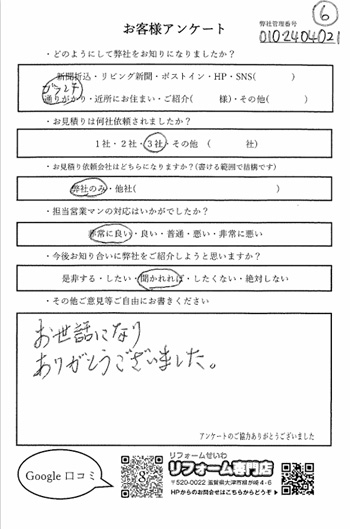 ⑥
お客様アンケート
弊社管理番号
0102404021
・どのようにして弊社をお知りになりましたか？
新聞折込・リビング新聞・ポストイン・HP・SNS(　　　)
通りがかり・近所にお住まい・ご紹介(　　　様)・その他(　　　)
・お見積りは何社依頼されましたか？
1社・2社・3社・その他　(　　　社)
・お見積り依頼会社はどちらになりますか？(書ける範囲で結構です)
弊社のみ・他社(　　　)
・担当営業マンの対応はいかがでしたか？
非常に良い・良い・普通・悪い・非常に悪い
・今後お知り合いに弊社をご紹介しようと思いますか？
是非する・したい・聞かれれば・したくない・絶対しない
・その他ご意見等ご自由にお書きください
お世話になり
ありがとうございました。
アンケートのご協力ありがとうございました
Google 口コミ
リフォームせいわ
リフォーム専門店
〒520-0022 滋賀県大津市柳が崎4-6
HPからのお問合せはこちらからどうぞ